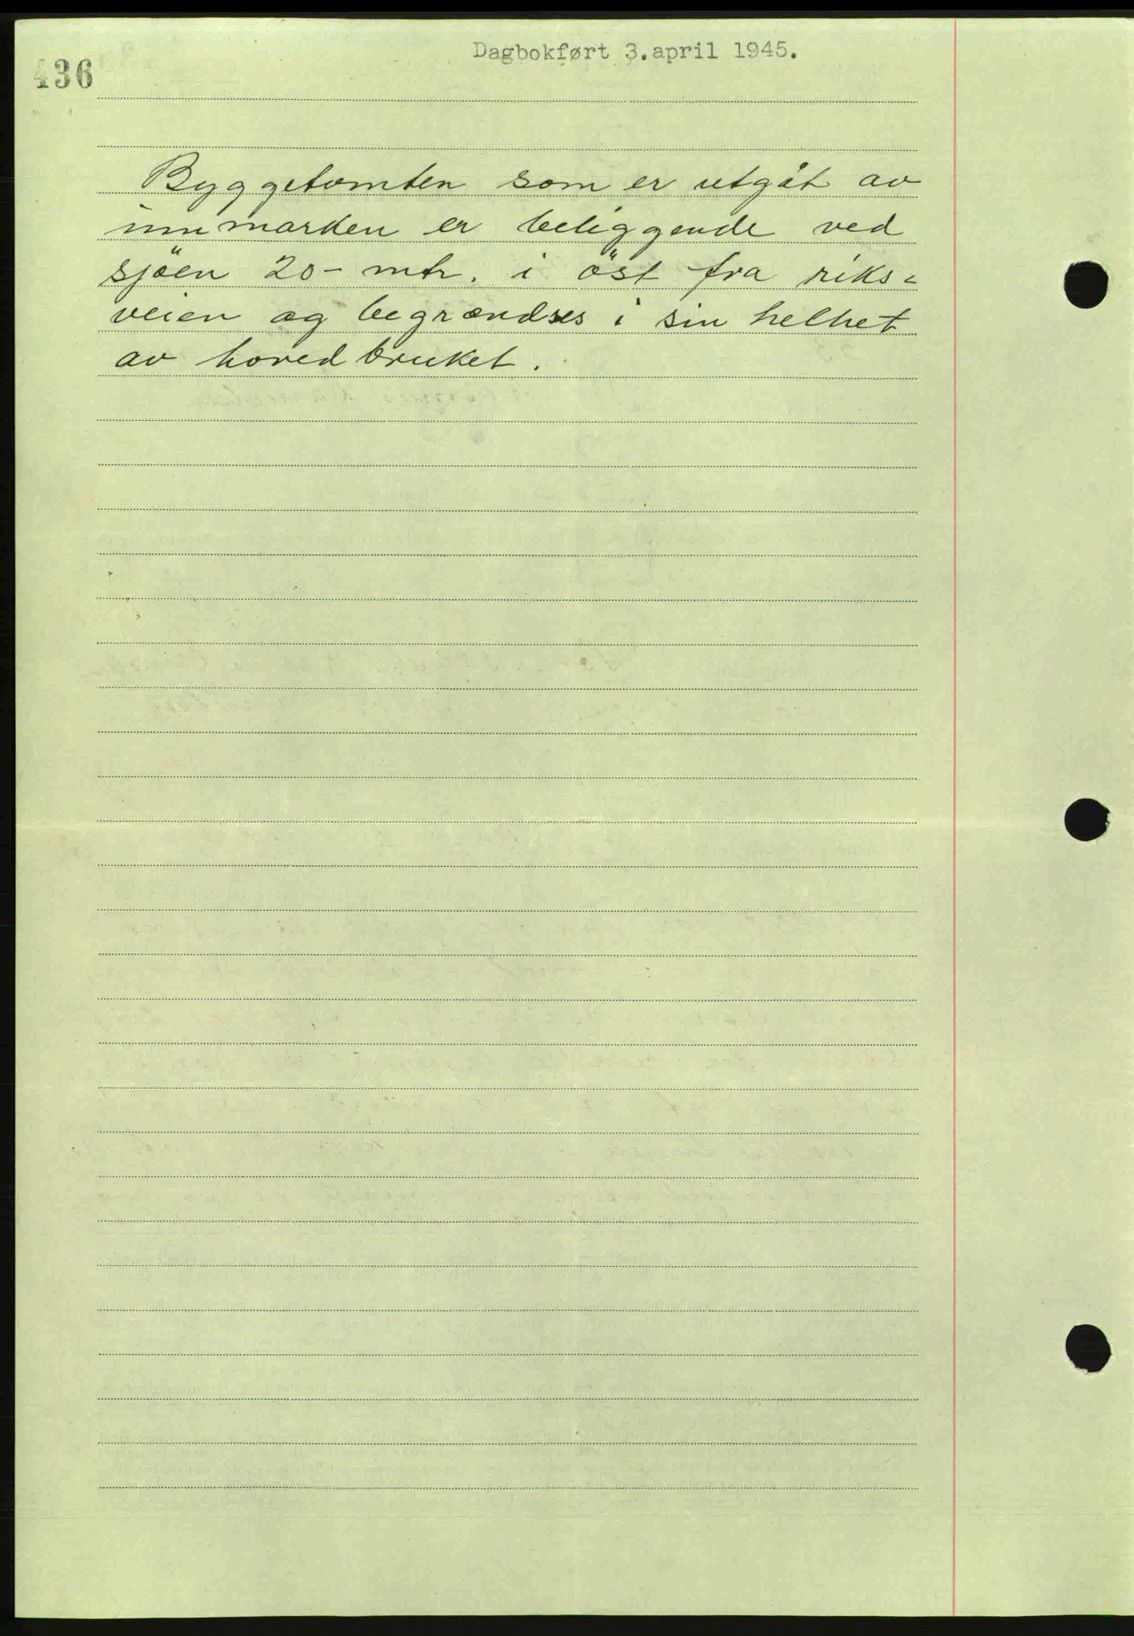 Dagbokført 3.april 1945.
436
Byggetomten som er utgåt av
innmarken er beliggende ved
sjöen 20- mtr. i öst fra riks=
veien og begrændses i sin helhet
av hovedbruket.